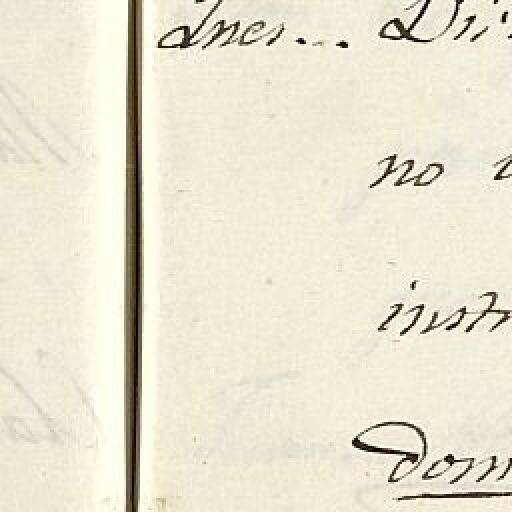 Ines... Di
no
instr
dom